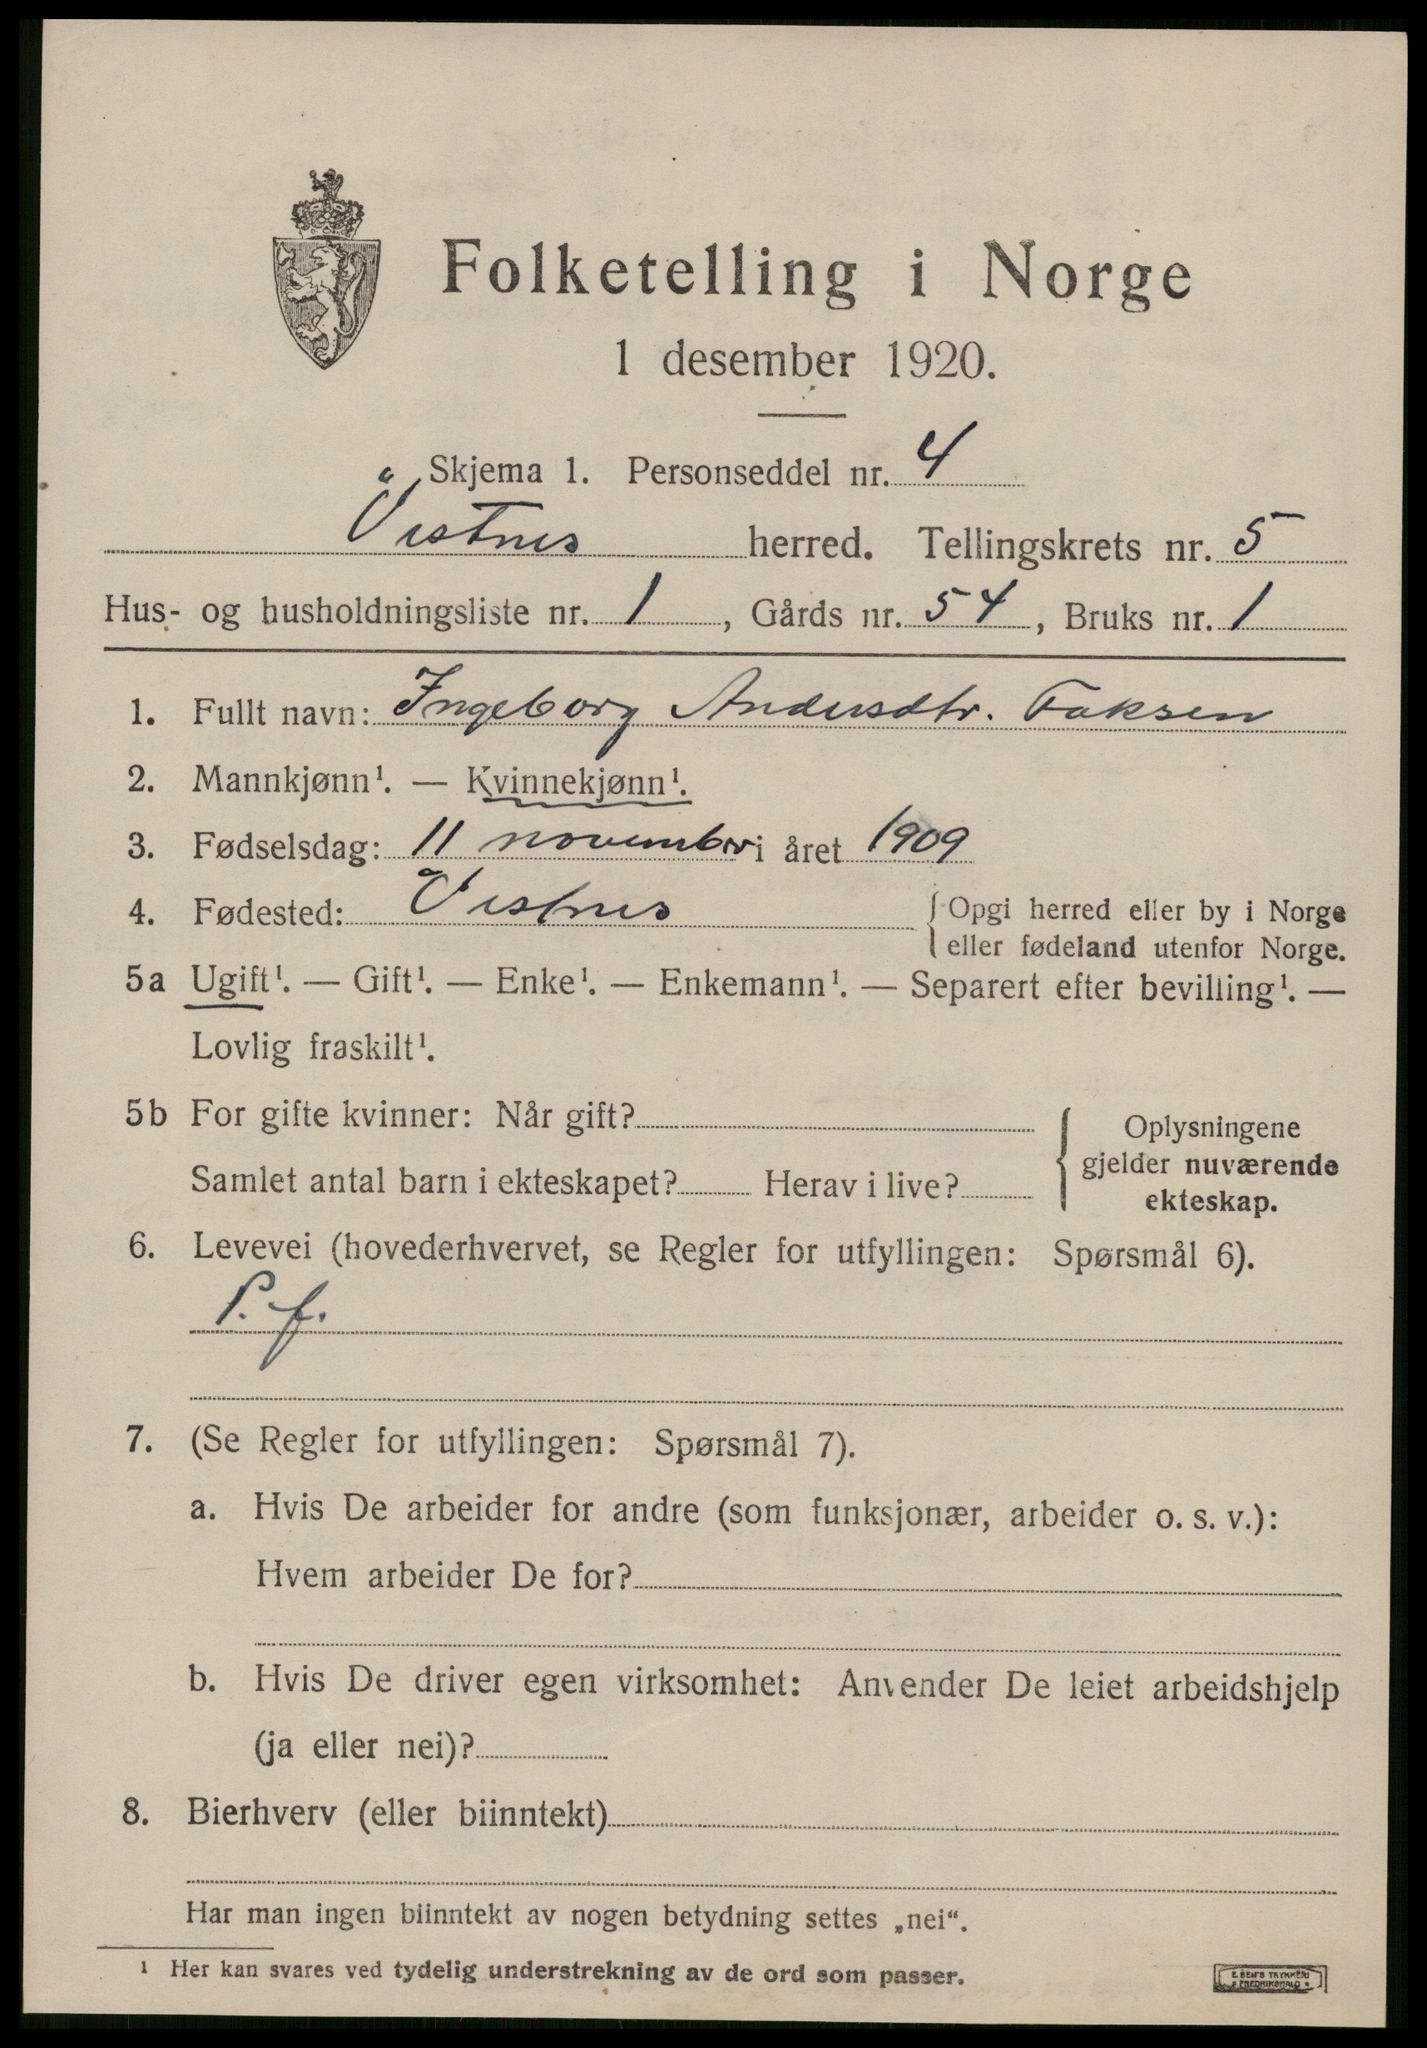 Folketelling i Norge
1 desember 1920.
Skjema 1. Personseddel nr. 4
Vestnes herred. Tellingskrets nr. 5
Hus- og husholdningsliste nr. 1, Gårds nr. 54, Bruks nr. 1
1. Fullt navn: Ingeborg Andersdtr. Faksen
2. Mannkjønn¹. — Kvinnekjønn¹.
3. Fødselsdag: 11 november i året 1909
4. Fødested: Vestnes {Opgi herred eller by i Norge
eller fødeland utenfor Norge.
5a Ugift¹. — Gift¹. — Enke¹. — Enkemann¹. — Separert efter bevilling¹. —
Lovlig fraskilt¹.
5b For gifte kvinner: Når gift?
Samlet antal barn i ekteskapet? Herav i live?
{Oplysningene
gjelder nuværende
ekteskap.
6. Levevei (hovederhvervet, se Regler for utfyllingen: Spørsmål 6).
P. f.
7. (Se Regler for utfyllingen: Spørsmål 7).
a. Hvis De arbeider for andre (som funksjonær, arbeider o. s. v.):
Hvem arbeider De for?
b. Hvis De driver egen virksomhet: Anvender De leiet arbeidshjelp
(ja eller nei)?
8. Bierhverv (eller biinntekt)
Har man ingen biinntekt av nogen betydning settes „nei“.
¹ Her kan svares ved tydelig understrekning av de ord som passer.
E. SEM'S TRYKKERI
FREDRIKSHALD